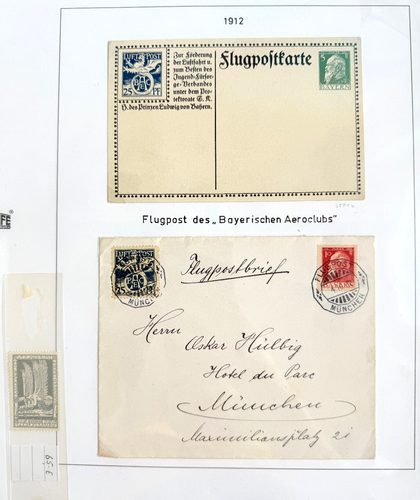 1912
LUFT-POST
25 PF.
Zur Förderung
der Luftfahrt u.
zum Besten des
Jugend-Fürsor-
ge-Verbandes
unter dem Pro-
tektorate S. K.
H. des Prinzen Ludwig von Bayern.
Flugpostkarte
5
BAYERN
Flugpost des „Bayerischen Aeroclubs"
FE
LUFT-POST
25
MÜNCHEN
Flugpostbrief
FLUGPOST
MÜNCHEN
Herrn
Oskar Hülbig
Hotel du Parc
München
Maximiliansplatz 21
65 €